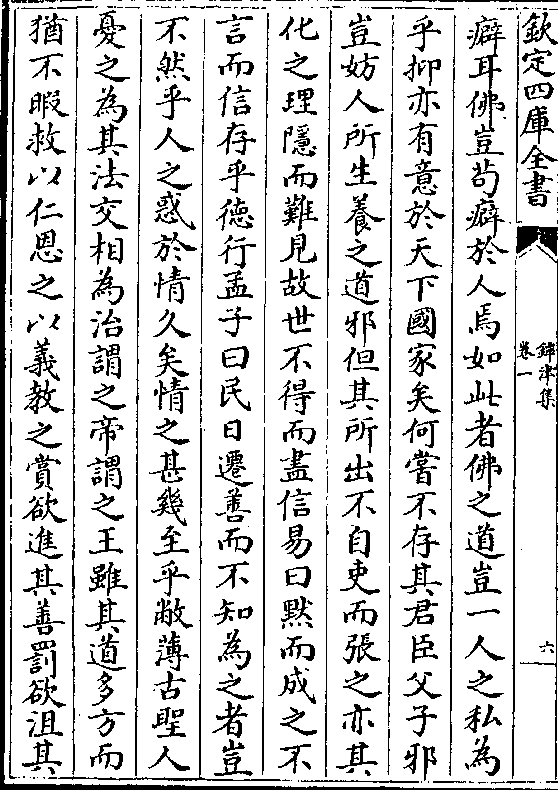 欽定四庫全書
鐔津集
卷一
六
癖耳佛豈苟癖於人焉如此者佛之道豈一人之私為
乎抑亦有意於天下國家矣何嘗不存其君臣父子邪
豈妨人所生養之道邪但其所出不自吏而張之亦其
化之理隱而難見故世不得而盡信易曰黙而成之不
言而信存乎徳行孟子曰民日遷善而不知為之者豈
不然乎人之惑於情久矣情之甚幾至乎敝薄古聖人
憂之為其法交相為治謂之帝謂之王雖其道多方而
猶不暇救以仁恩之以義教之賞欲進其善罰欲沮其